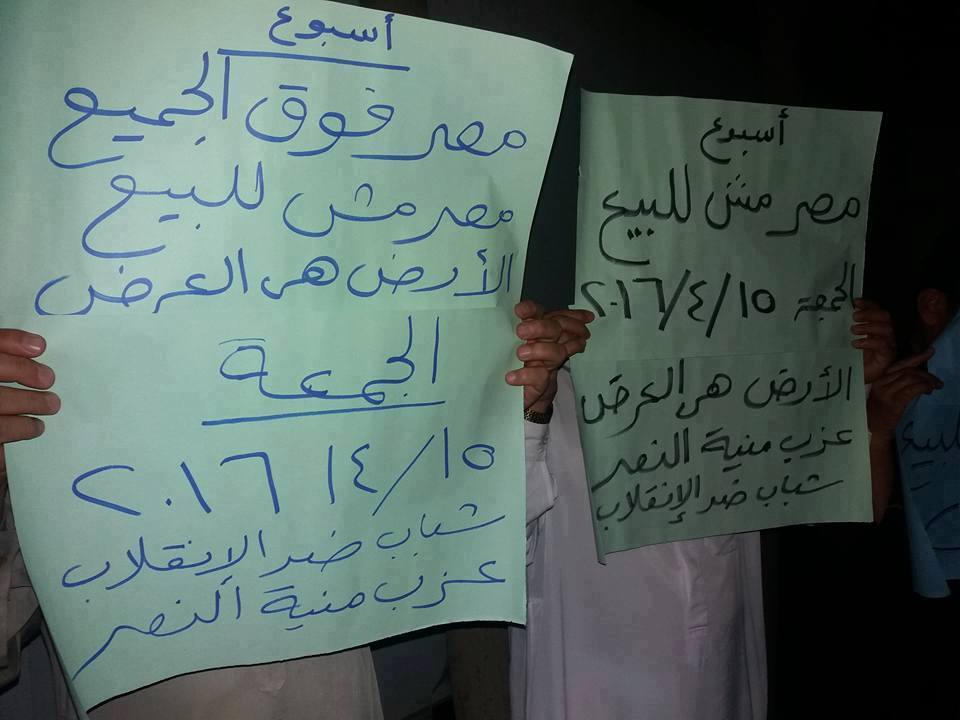 أسبوع
مصر فوق الجميع
مصر مش للبيع
الأرض هى العرض
الجمعة
١٥/٤/٢٠١٦
شباب ضد الإنقلاب
عزب منية النصر
أسبوع
مصر مش للبيع
الجمعة ١٥/٤/٢٠١٦
الأرض هى العرض
عزب منية النصر
شباب ضد الإنقلاب